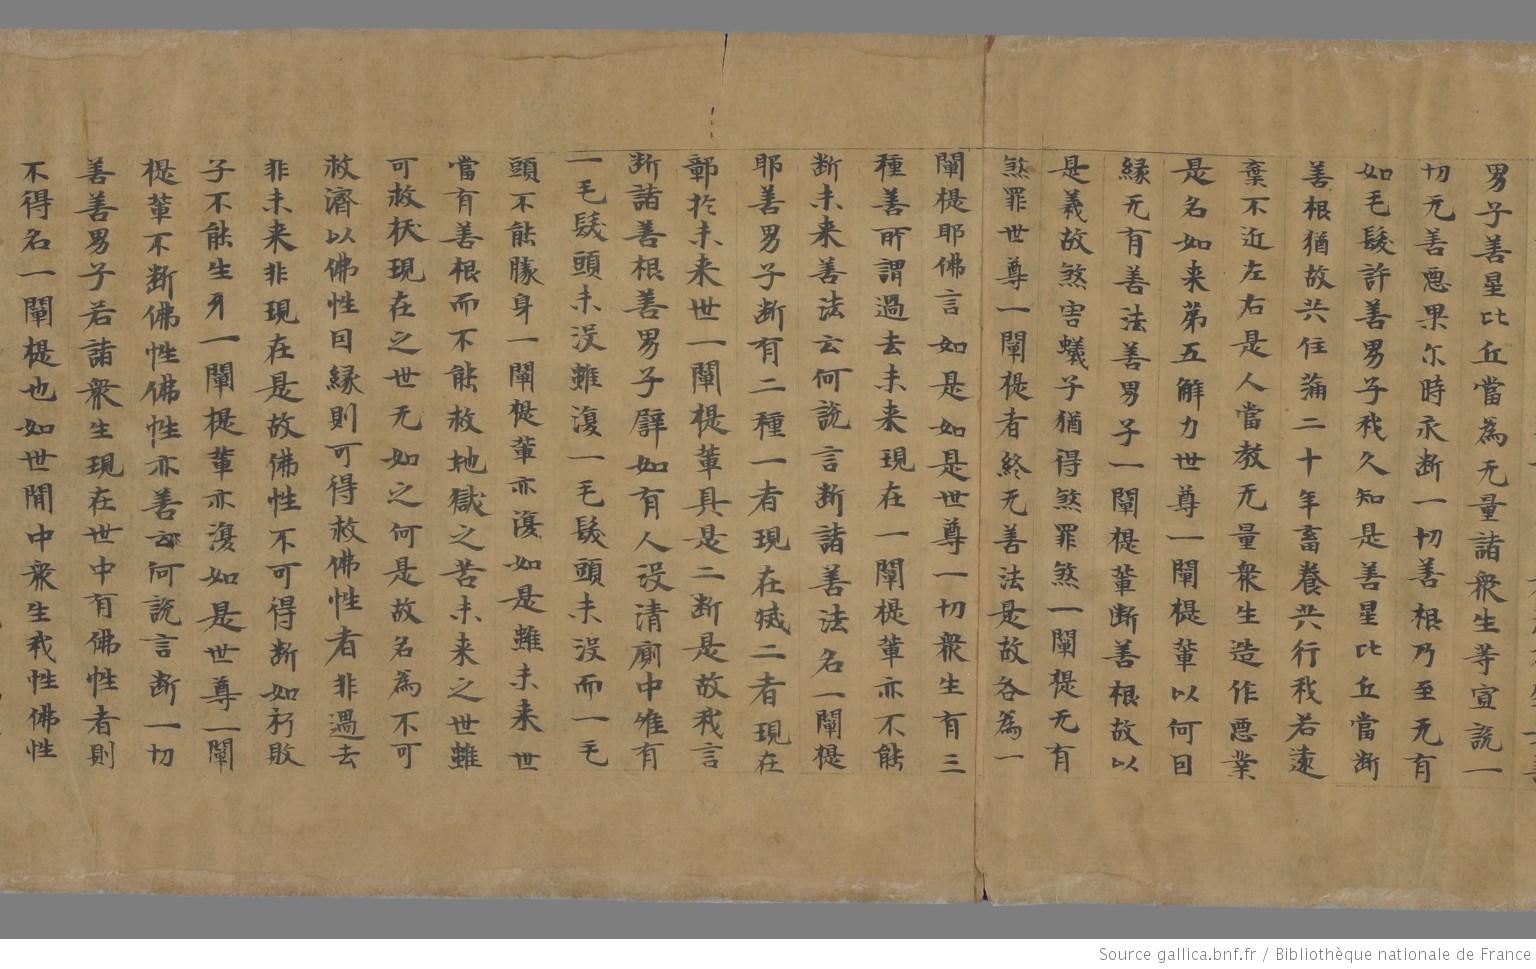 男子善星比丘當為无量諸衆生等宣說一
切无善惡果尒時永断一切善根乃至无有
如毛髮許善男子我久知是善星比丘當断
善根猶故共住滿二十年畜養共行我若遠
棄不近左右是人當教无量衆生造作惡業
是名如来第五解力世尊一闡提輩以何因
緣无有善法善男子一闡提輩断善根故以
是義故煞害蟻子猶得煞罪煞一闡提无有
煞罪世尊一闡提者終无善法是故各為一
闡提耶佛言如是如是世尊一切衆生有三
種善所謂過去未来現在一闡提輩亦不能
断未来善法云何說言断諸善法名一闡提
耶善男子断有二種一者現在滅二者現在
鄣扵未来世一闡提輩具是二断是故我言
断諸善根善男子譬如有人没清廁中唯有
一毛髮頭未没雖復一毛髮頭未没而一毛
頭不能勝身一闡提輩亦復如是雖未来世
當有善根而不能救地獄之苦未来之世雖
可救栿現在之世无如之何是故名為不可
救濟以佛性因緣則可得救佛性者非過去
非未来非現在是故佛性不可得断如朽敗
子不能生牙一闡提輩亦復如是世尊一闡
提輩不断佛性佛性亦善云何說言断一切
善善男子若諸衆生現在世中有佛性者則
不得名一闡提也如世間中衆生我性佛性
Source gallica.bnf.fr / Bibliothèque nationale de France